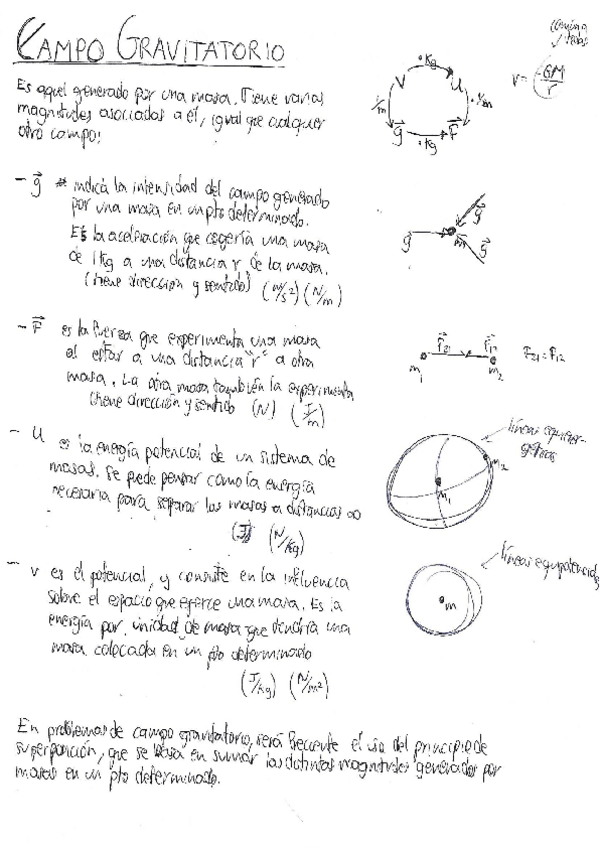 CAMPO GRAVITATORIO
Es aquel generado por una masa. Tiene varias
magnitudes asociadas a él, igual que cualquier
otro campo:
V ·Kg U
1/m ·1/m
g ·Kg F
V = -GM/r
- g indica la intensidad del campo generado
por una masa en un pto determinado.
Es la aceleración que cogería una masa
de 1kg a una distancia r de la masa.
(tiene dirección y sentido) (m/s²)
g
g
m
g
- F es la fuerza que experimenta una masa
al estar a una distancia "r" a otra
masa. La otra masa también la experimenta
(tiene dirección y sentido (N) (J/m)
F21 F12
m1 m2
F21 = F12
- U es la energía potencial de un sistema de
masas. Se puede pensar como la energía
necesaria para separar las masas a distancias ∞
(J) (N/kg)
m1
m2
- V es el potencial, y consiste en la influencia
sobre el espacio que ejerce una masa. Es la
energía por unidad de masa que tendría una
masa colocada en un pto determinado
(J/kg) (N/m²)
líneas equipotenciales
m
En problemas de campo gravitatorio, será frecuente el uso del principio de
superposición, que se basa en sumar las distintas magnitudes generadas por
masas en un pto determinado.